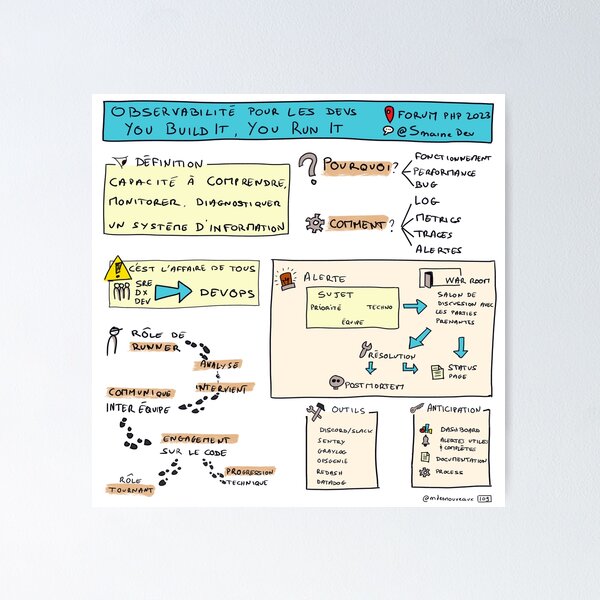 OBSERVABILITÉ POUR LES DEVS
YOU BUILD IT, YOU RUN IT
FORUM PHP 2023
@SmaineDev
DÉFINITION
CAPACITÉ À COMPRENDRE,
MONITORER, DIAGNOSTIQUER
UN SYSTÈME D'INFORMATION
POURQUOI?
FONCTIONNEMENT
PERFORMANCE
BUG
COMMENT?
LOG
METRICS
TRACES
ALERTES
C'EST L'AFFAIRE DE TOUS
SRE
DX
DEV
DEVOPS
ALERTE
SUJET
PRIORITÉ TECHNO
ÉQUIPE
WAR ROOM
SALON DE
DISCUSSION AVEC
LES PARTIES
PRENANTES
RÉSOLUTION
STATUS
PAGE
POSTMORTEM
RÔLE DE
RUNNER
ANALYSE
INTERVIENT
COMMUNIQUE
INTER ÉQUIPE
ENGAGEMENT
SUR LE CODE
RÔLE
TOURNANT
PROGRESSION
TECHNIQUE
OUTILS
DISCORD/SLACK
SENTRY
GRAYLOG
OPSGENIE
REDASH
DATADOG
ANTICIPATION
DASHBOARD
ALERTES UTILES
& COMPLÈTES
DOCUMENTATION
PROCESS
109